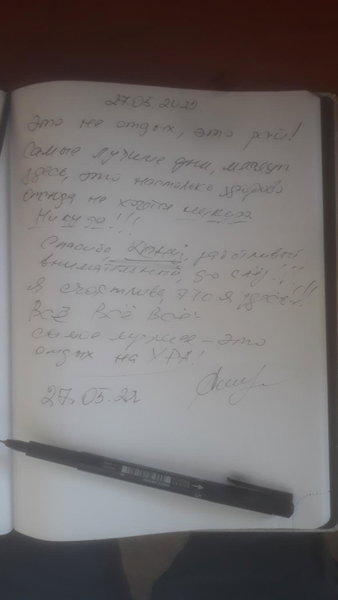 27.05.2022
Это не отдых, это рай!
Самые лучшие дни, могут
здесь, это настолько здорово
отсюда не хочется
Никуда!!!
Спасибо, заботливый
внимательный, до слёз!!!
Я счастлива, что я здесь!!!
Всё Всё Всё!
самое лучшее – это
отдых на УРА!
27.05.22